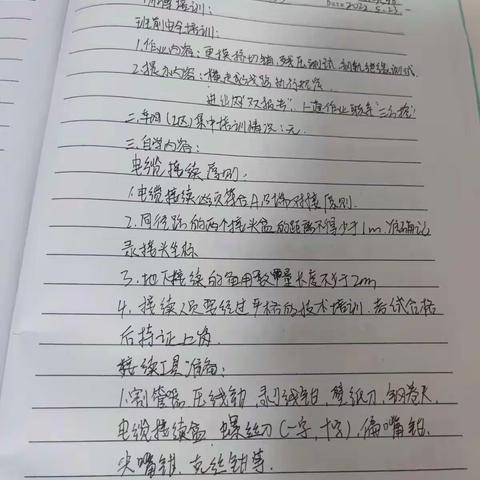 Date 2022.5.23
培训:
班前安全培训:
1.作业内容:更换转切箱,残压测试,钢轨绝缘测试.
2.提示内容:横过线路执行
进出网"双报告",上道作业联系"三
二.车间(工区)集中培训情况:无.
三.自学内容:
电缆接续原则:
1.电缆接续必须符合A.B端对接原则.
2.同径路的两个接头盒的距离不得少于1m.准确记
录接头坐标
3.地下接续的备用量长度不少于2m
4.接续人员要经过严格的技术培训,考试合格
后持证上岗.
接续工具准备:
1.割管器.压线钳.剥线钳.壁纸刀.钢卷尺.
电缆接续盒.螺丝刀(一字,十字).偏嘴钳.
尖嘴钳.克丝钳等.